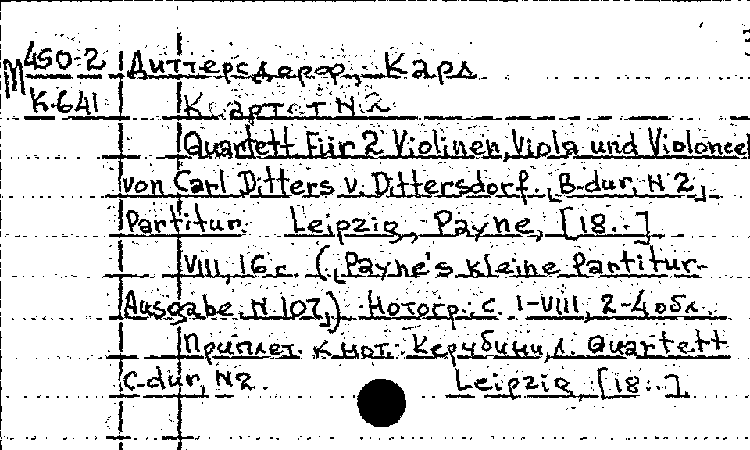 М 450-2 Диттерсдорф, Карл
К-641 Квартет N 2
Quartett Für 2 Violinen, Viola und Violoncel
von Carl Ditters v. Dittersdorf. [B-dur, N 2]
Partitur. Leipzig, Payne, [18..]
VIII, 16 с. ([Payne's kleine Partitur-
Ausgabe. N 107]) Нотогр.: с. I-VIII, 2-4 обл.
Приплет. к нот.: Керубини, Л. Quartett
C-dur, N2. Leipzig, [18..]